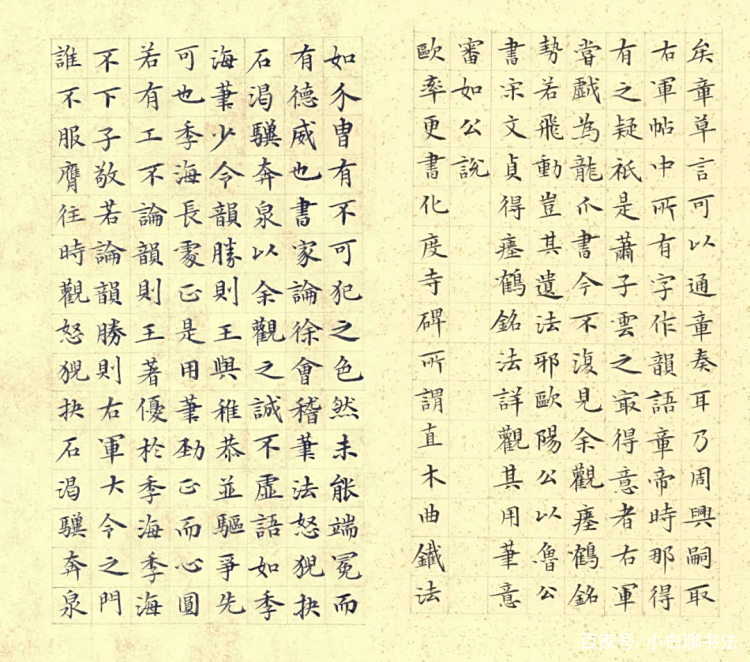 矣章草言可以通章奏耳乃周興嗣取
右軍帖中所有字作韻語章帝時那得
有之疑祇是蕭子雲之㝡得意者右軍
嘗戲為龍爪書今不復見余觀瘞鶴銘
勢若飛動豈其遺法邪歐陽公以魯公
書宋文貞得瘞鶴銘法詳觀其用筆意
審如公說
歐率更書化度寺碑所謂直木曲鐵法
如介冑有不可犯之色然未能端冕而
有德威也書家論徐會稽筆法怒猊抉
石渴驥奔泉以余觀之誠不虛語如季
海筆少令韻勝則王與稚恭並驅爭先
可也季海長處正是用筆勁正而心圓
若有工不論韻則王著優於季海季海
不下子敬若論韻勝則右軍大令之門
誰不服膺往時觀怒猊抉石渴驥奔泉
百家号/小白聊书法